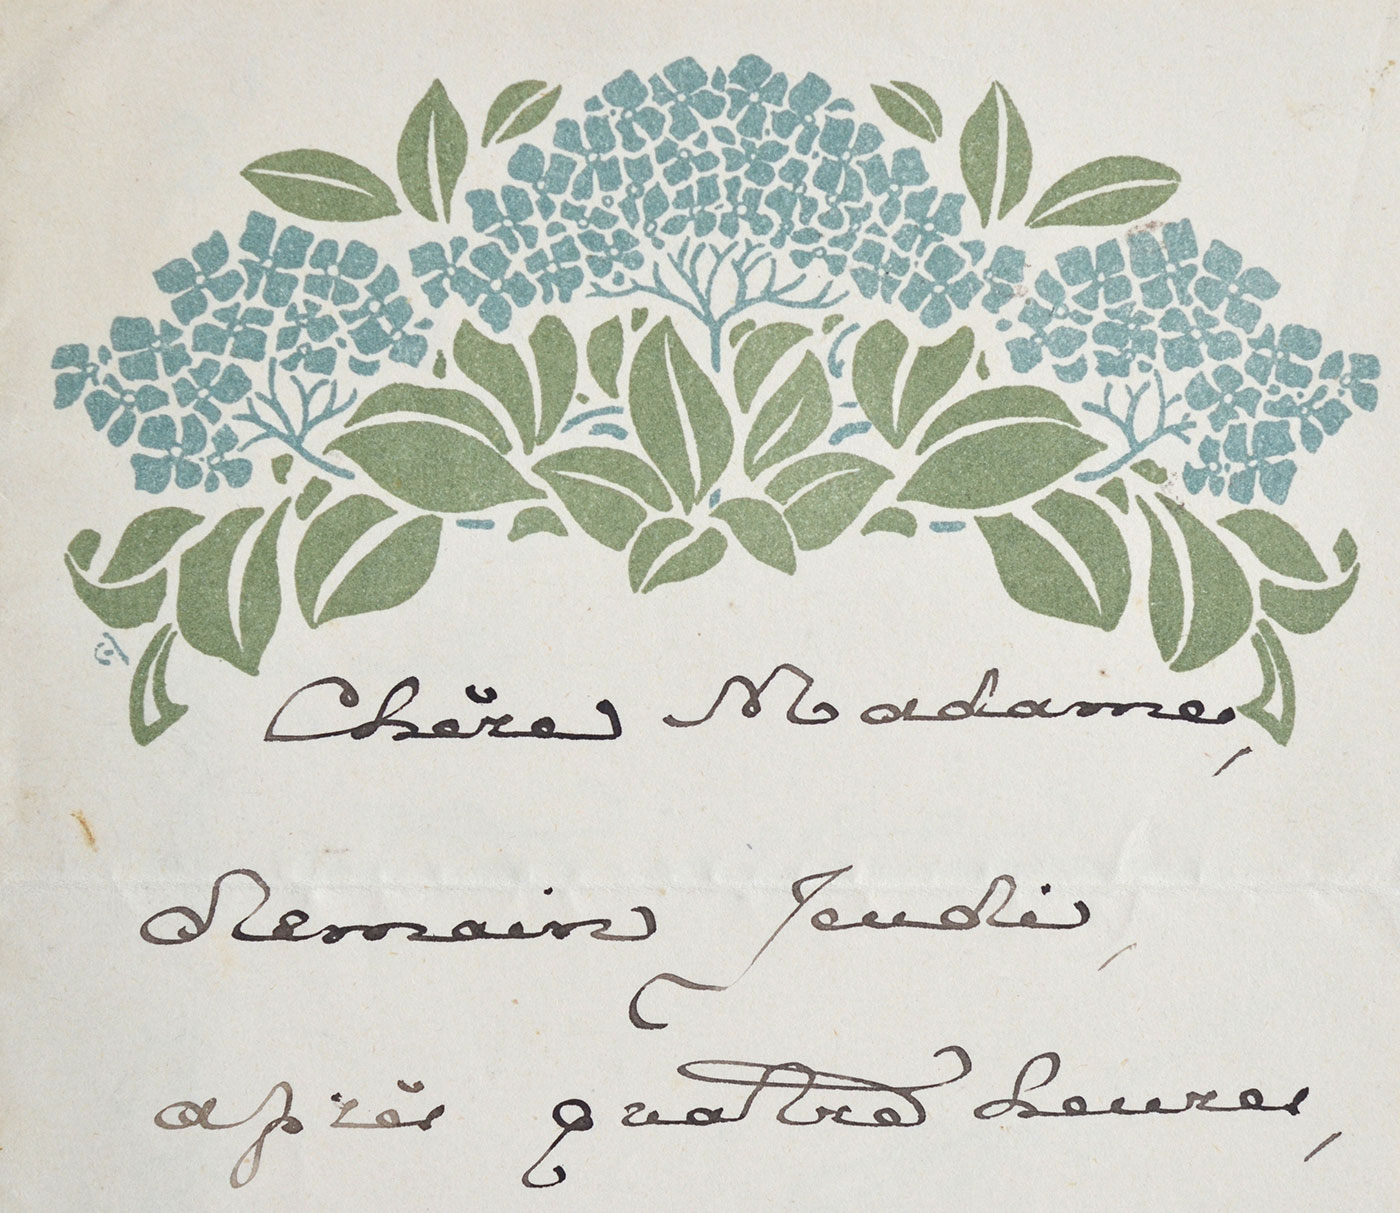 Chère Madame,
demain Jeudi,
après quatre heures,